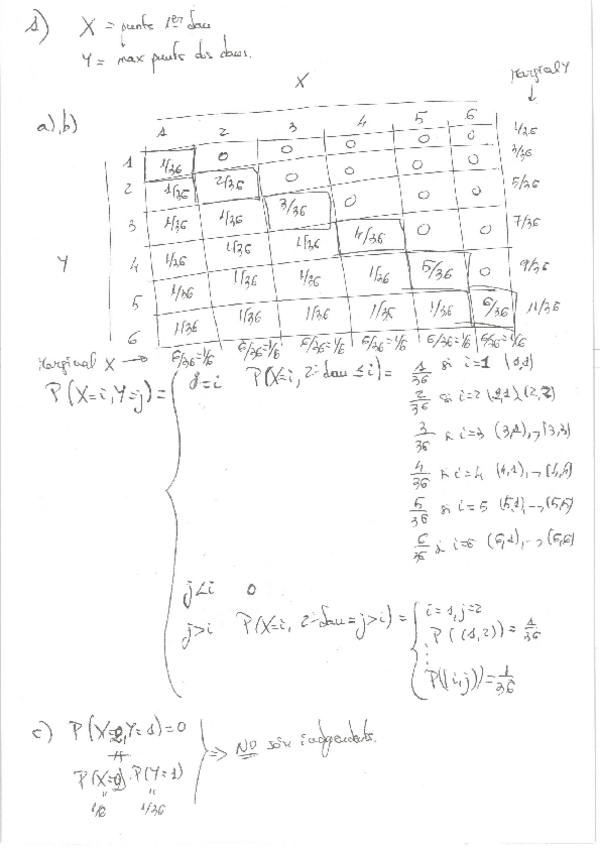 1) X = punts 1er dau
Y = max punts dos daus.
Marginal Y
↓
X
a), b)
1 2 3 4 5 6
1 1/36 0 0 0 0 0 1/36
2 1/36 2/36 0 0 0 0 3/36
3 1/36 1/36 3/36 0 0 0 5/36
Y 4 1/36 1/36 1/36 4/36 0 0 7/36
5 1/36 1/36 1/36 1/36 5/36 0 9/36
6 1/36 1/36 1/36 1/36 1/36 6/36 11/36
Marginal X → 6/36=1/6 6/36=1/6 6/36=1/6 6/36=1/6 6/36=1/6 6/36=1/6
P(X=i, Y=j) = { j=i P(X=i, 2n dau ≤ i) = 1/36 si i=1 (1,1)
2/36 si i=2 (2,1), (2,2)
3/36 si i=3 (3,1),→(3,3)
4/36 si i=4 (4,1),→(4,4)
5/36 si i=5 (5,1),→(5,5)
6/36 si i=6 (6,1),→(6,6)
j<i 0
j>i P(X=i, 2n dau=j>i) = { i=1, j=2
P((1,2)) = 1/36
⋮
P((i,j)) = 1/36
c) P(X=2, Y=1)=0
P(X=2)·P(Y=1)
1/6 1/36
} ⇒ NO són independents.